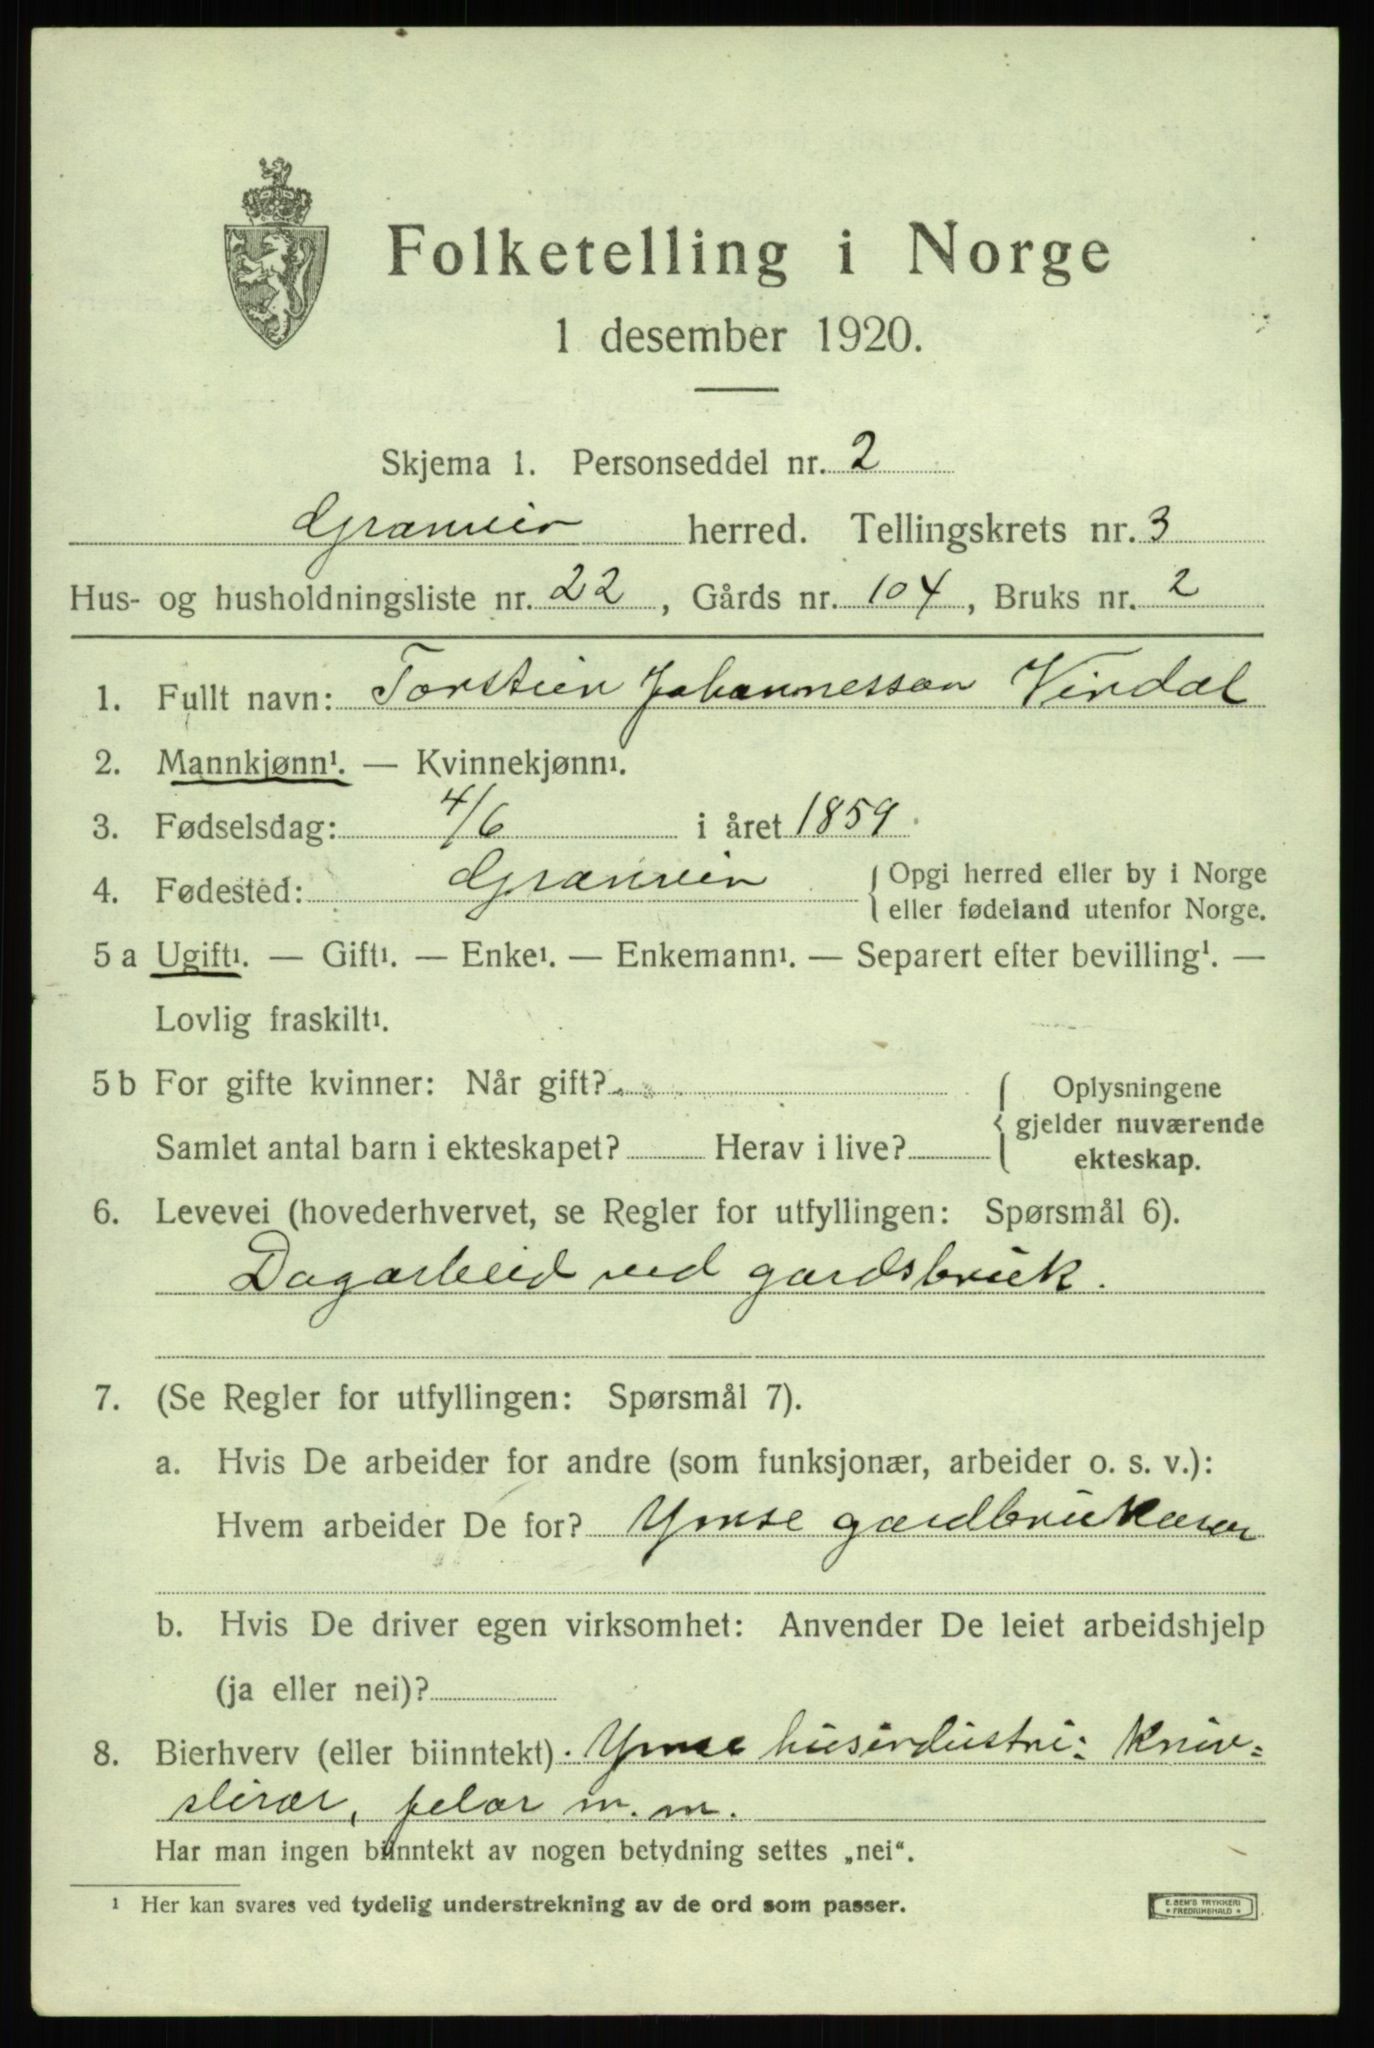 Folketelling i Norge
1 desember 1920.
Skjema 1. Personseddel nr. 2
Granvin herred. Tellingskrets nr. 3
Hus- og husholdningsliste nr. 22, Gårds nr. 104, Bruks nr. 2
1. Fullt navn: Torstein Johannesson Virdal
2. Mannkjønn¹. — Kvinnekjønn¹.
3. Fødselsdag: 4/6 i året 1859.
4. Fødested: Granvin { Opgi herred eller by i Norge
eller fødeland utenfor Norge.
5 a Ugift¹. — Gift¹. — Enke¹. — Enkemann¹. — Separert efter bevilling¹. —
Lovlig fraskilt¹.
5 b For gifte kvinner: Når gift? { Oplysningene
gjelder nuværende
Samlet antal barn i ekteskapet? Herav i live?
ekteskap.
6. Levevei (hovederhvervet, se Regler for utfyllingen: Spørsmål 6).
Dagarbeid ved gardsbruk.
7. (Se Regler for utfyllingen: Spørsmål 7).
a. Hvis De arbeider for andre (som funksjonær, arbeider o. s. v.):
Hvem arbeider De for? Ymse gardbrukarar
b. Hvis De driver egen virksomhet: Anvender De leiet arbeidshjelp
(ja eller nei)?
8. Bierhverv (eller biinntekt). Ymse husindustri: Kniv-
slirar, felar m.m.
Har man ingen biinntekt av nogen betydning settes „nei“.
¹ Her kan svares ved tydelig understrekning av de ord som passer.
E. SEM'S TRYKKERI
* FREDRIKSHALD *